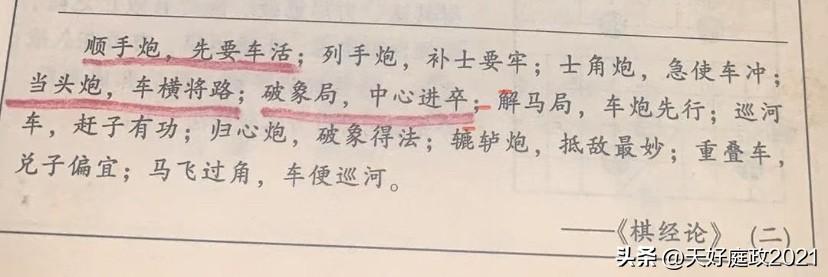 顺手炮，先要车活；列手炮，补士要牢；士角炮，急使车冲；
当头炮，车横将路；破象局，中心进卒；解马局，车炮先行；巡河
车，赶子有功；归心炮，破象得法；辘轳炮，抵敌最妙；重叠车，
兑子偏宜；马飞过角，车便巡河。
——《棋经论》（二）
头条 @天好庭政2021